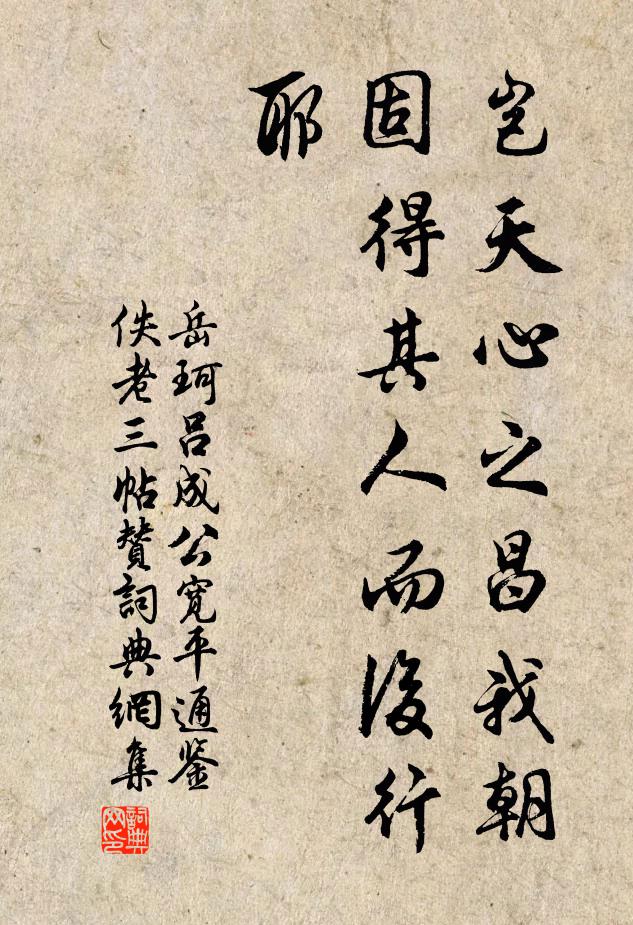 豈天心之昌我朝
固得其人而後行
耶
岳珂呂成公寬平通鉴
佚老三帖賛詞典網集
詞典
网印